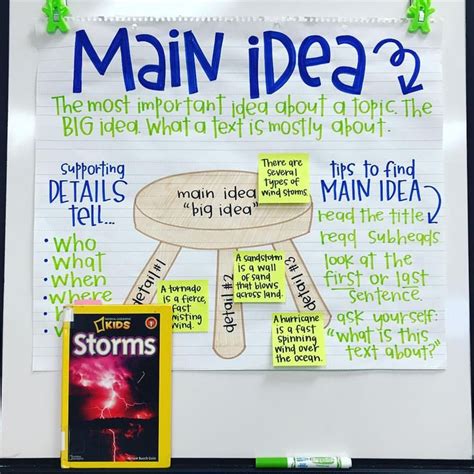 MAIN IDEA
The most important idea about a topic. The
BIG idea. What a text is mostly about.
supporting
DETAILS
tell...
• who
• what
• when
• where
main idea
"big idea"
There are
several
types of
wind storms.
detail #1
detail #2
detail #3
A tornado
is a fierce,
fast
wind.
A sandstorm
is a wall
of sand
that blows
across land.
A hurricane
is a fast
spinning
wind over
the ocean.
tips to find
MAIN IDEA
read the title
read subheads
look at the
first or last
sentence.
ask yourself:
"what is this
text about?"
NATIONAL GEOGRAPHIC
KIDS
Storms